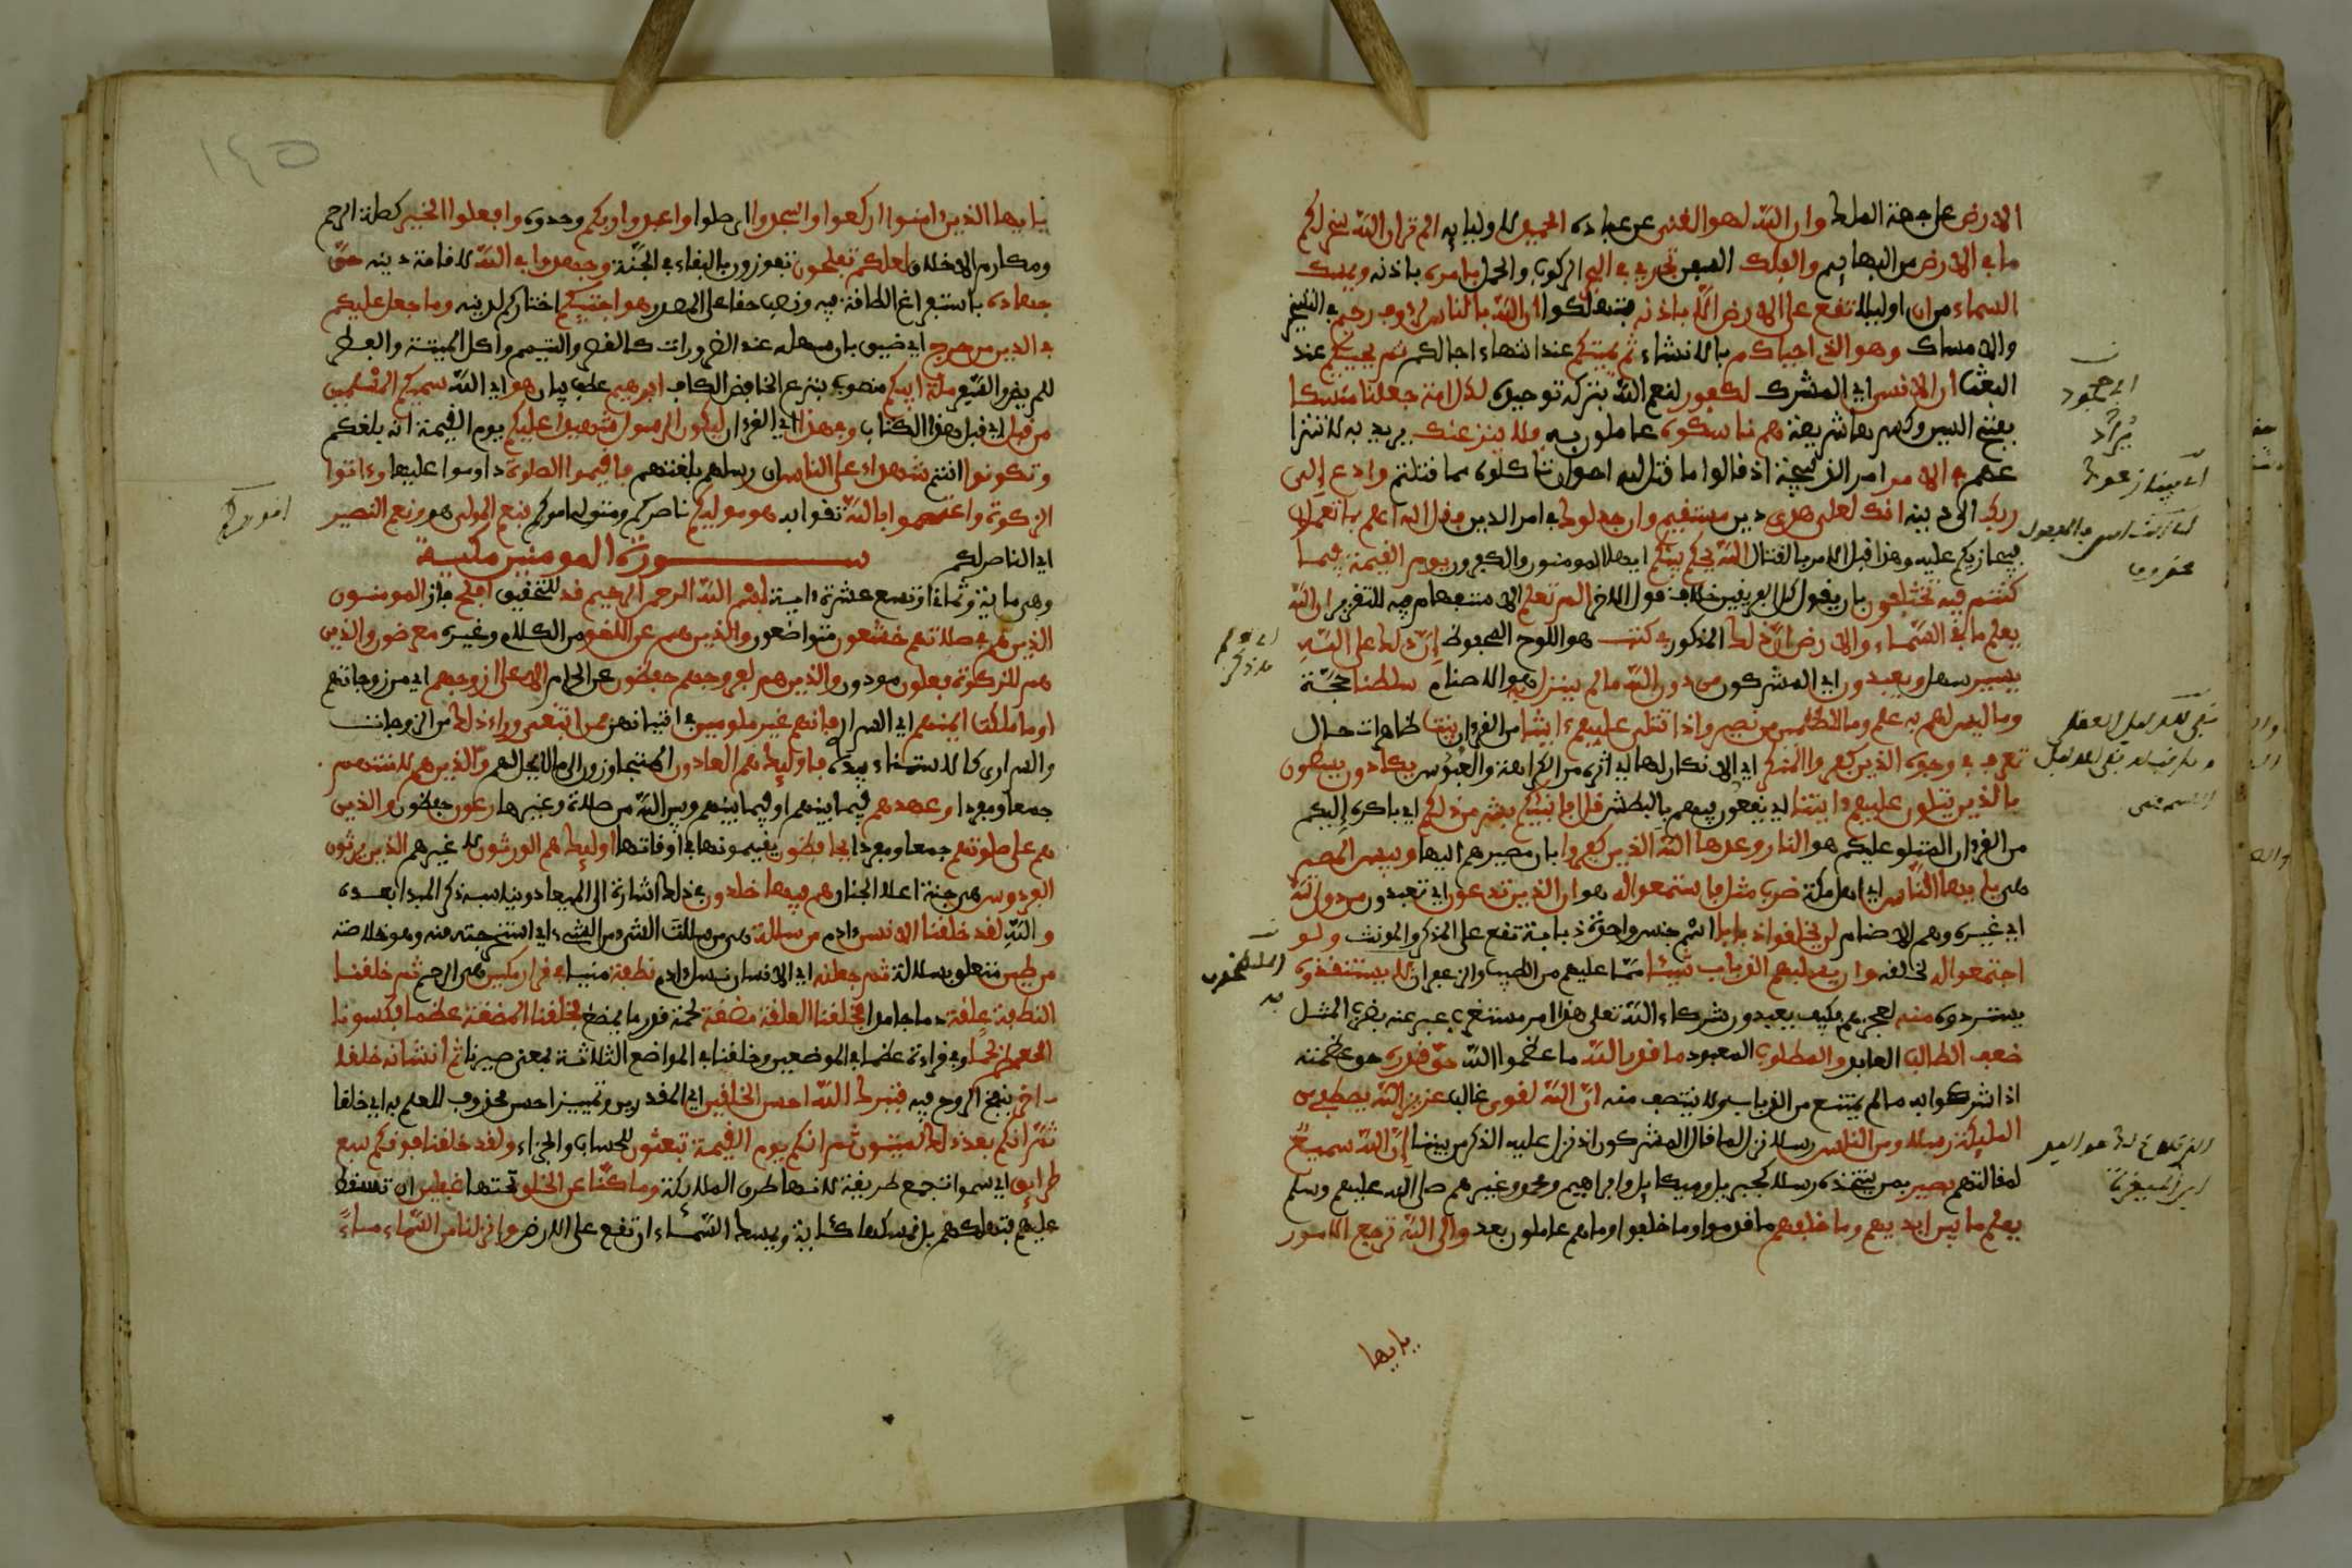 الارض على جهة الملك وان الله لهو الغنى عن عباده الحميد لاوليايه الم تر ان الله سخر لكم
ما في الارض من البهايم والفلك السفن تجري في البحر للركوب والحمل بامره باذنه ويمسك
السماء من ان او ليلا تقع على الارض الا باذنه فتهلكوا ان الله بالناس لرءوف رحيم في التسخير
والامساك وهو الذي احياكم بالانشاء ثم يميتكم عند انتهاء اجالكم ثم يحييكم عند
البعث ان الانسن اي المشرك لكفور لنعم الله بتركه توحيده لكل امة جعلنا منسكا
بفتح السين وكسرها شريعة هم ناسكوه عاملون به فلا ينزعنك يريد به لا تنزعا
عهم في الامر امر الذبيحة اذ قالوا ما قتل الله احق ان تاكلوه مما قتلتم وادع الى
ربك الى دينه انك لعلى هدى دين مستقيم وان جدلوك في امر الدين فقل الله اعلم بما تعملون
فيجازيكم عليه وهذا قبل الامر بالقتال الله يحكم بينكم ايها المومنون والكفرون يوم القيمة فيما
كنتم فيه تختلفون بان يقول كل الفريقين خلاف قول الاخر الم تعلم الاستفهام فيه للتقرير ان الله
يعلم ما في السماء والارض ان ذلك المذكور في كتب هو اللوح المحفوظ ان ذلك على الله
يسير سهل ويعبدون اي المشركون من دون الله ما لم ينزل به هو الاصنام سلطنا حجة
وما ليس لهم به علم وما للظلمين من نصير واذا تتلى عليهم ءايتنا من القرءان بينت ظاهرات حال
تعرف في وجوه الذين كفروا المنكر اي الانكار لها اي اثره من الكراهة والعبوس يكادون يسطون
بالذين يتلون عليهم ءايتنا اي يقعون فيهم بالبطش قل افانبيكم بشر من ذلكم اي باكره اليكم
من القرءان المتلو عليكم هو النار وعدها الله الذين كفروا بان مصيرهم اليها وبيس المصير
هي يايها الناس اي اهل مكة ضرب مثل فاستمعوا له هو ان الذين تدعون اي تعبدون من دون الله
اي غيره وهم الاصنام لن يخلقوا ذبابا اسم جنس واحده ذبابة تقع على المذكر والمونث ولو
اجتمعوا له لخلقه وان يسلبهم الذباب شيئا مما عليهم من الطيب والزعفران لا يستنقذوه
يستردوه منه لعجزهم فكيف يعبدون شركاء الله تعلى هذا امر مستغرب عبر عنه بضرب المثل
ضعف الطالب العابد والمطلوب المعبود ما قدروا الله ما عظموا الله حق قدره حق عظمته
اذ اشركوا به ما لم يمتنع من الذباب ولا ينتصف منه ان الله لقوى غالب عزيز الله يصطفي من
المليكة رسلا ومن الناس رسلا نزل لما قال المشركون اانزل عليه الذكر من بيننا ان الله سميع
لمقالتهم بصير بمن يتخذه رسلا كجبريل وميكاييل وابراهيم ومحمد وغيرهم صلى الله عليهم وسلم
يعلم ما بين ايديهم وما خلفهم ما قدموا وما خلفوا وما هم عاملون بعد والى الله ترجع الامور
يايها
يايها الذين ءامنوا اركعوا واسجدوا اي صلوا واعبدوا ربكم وحدوه وافعلوا الخير كصلة الرحم
ومكارم الاخلاق لعلكم تفلحون تفوزون بالبقاء في الجنة وجهدوا في الله لاقامة دينه حق
جهاده باستفراغ الطاقة فيه ونصب حق على المصدر هو اجتبيكم اختاركم لدينه وما جعل عليكم
في الدين من حرج اي ضيق بان سهله عند الضرورات كالقصر والتيمم واكل الميتة والفطر
للمريض والسفر ملة ابيكم منصوب بنزع الخافض الكاف ابرهيم عطف بيان هو اي الله سميكم المسلمين
من قبل اي قبل هذا الكتاب وفي هذا اي القرءان ليكون الرسول شهيدا عليكم يوم القيمة انه بلغكم
وتكونوا انتم شهداء على الناس ان رسلهم بلغتهم فاقيموا الصلوة داوموا عليها وءاتوا
الزكوة واعتصموا بالله ثقوا به هو موليكم ناصركم ومتولى اموركم فنعم المولى هو ونعم النصير
اي الناصر لكم سورة المومنين مكية
وهي ماية وثمان او تسع عشرة ءاية بسم الله الرحمن الرحيم قد للتحقيق افلح فاز المومنون
الذين هم في صلاتهم خشعون متواضعون والذين هم عن اللغو من الكلام وغيره معرضون والذين
هم للزكوة فعلون مودون والذين هم لفروجهم حفظون عن الحرام الا على ازوجهم اي من زوجاتهم
او ما ملكت ايمنهم اي السراري فانهم غير ملومين في اتيانهن فمن ابتغى وراء ذلك من الزوجات
والسراري كالاستمناء بيده فاوليك هم العادون المتجاوزون الى ما لا يحل لهم والذين هم لامنتهم
جمعا ومفردا وعهدهم فيما بينهم او فيما بينهم وبين الله من صلاة وغيرها رعون حفظون والذين
هم على صلوتهم جمعا ومفردا يحافظون يقيمونها في اوقاتها اوليك هم الورثون لا غيرهم الذين يرثون
الفردوس هي جنة اعلا الجنان هم فيها خلدون في ذلك اشارة الى المعاد ويناسبه ذكر المبدا بعده
والله لقد خلقنا الانسن ءادم من سلالة هي من سللت الشيء من الشيء اي استخرجته منه وهو خلاصته
من طين متعلق بسلالة ثم جعلنه اي الانسان نسل ءادم نطفة منيا في قرار مكين هي الرحم ثم خلقنا
النطفة علقة دما جامدا فخلقنا العلقة مضغة لحمة قدر ما يمضغ فخلقنا المضغة عظما فكسونا
العظم لحما وفي قراءة عظما في الموضعين وخلقنا في المواضع الثلاثة بمعنى صيرنا ثم انشانه خلقا
ءاخر بنفخ الروح فيه فتبرك الله احسن الخلقين اي المقدرين وتمييز احسن محذوف للعلم به اي خلقا
ثم انكم بعد ذلك لميتون ثم انكم يوم القيمة تبعثون للحساب والجزاء ولقد خلقنا فوقكم سبع
طرايق اي سموات جمع طريقة لانها طرق الملايكة وما كنا عن الخلق تحتها غفلين ان تسقط
عليهم فتهلكهم بل نمسكها كئاية ويمسك السماء ان تقع على الارض وانزلنا من السماء ماء
١٤٥